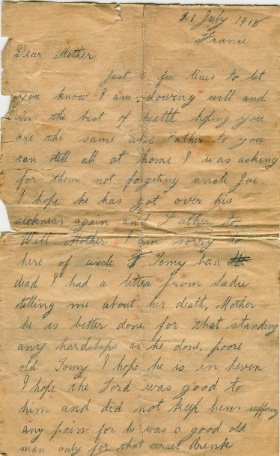 21 July 1918
France
Dear Mother
Just a few lines to let
you know I am going well and
in the best of health hoping you
are the same and Father to you
can tell all at home I was asking
for them not forgeting uncle Joe
I hope he has got over his
sickness again and Father to
Well Mother I am sorry to
here of uncle Tomy ban
dead I had a letter from Sadie
telling me about his death, Mother
he is better done for that standing
any hardships as he done, poore
old Tomy I hope he is in heven
I hope the Lord was good to
him and did not keep him suffering
any pain for he was a good old
man only for that curset drink